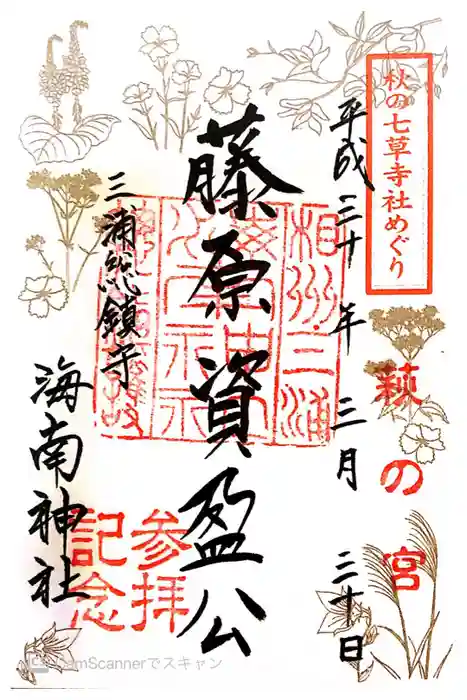 秋の七草寺社めぐり
萩の宮
平成三十年三月三十日
藤原資盈公
三浦総鎮守
海南神社
相州三浦
参拝
記念
CamScannerでスキャン